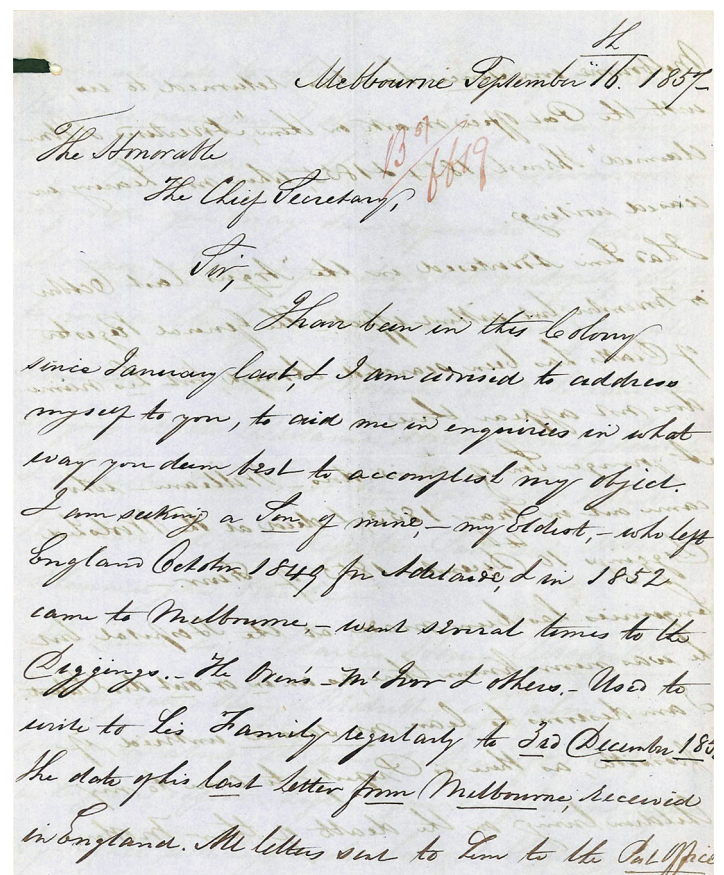 Melbourne September 16th. 1857
B 57/6619
The Honorable
The Chief Secretary,
Sir,
I have been in this Colony
since January last, & I am advised to address
myself to you, to aid me in enquiries in what
way you deem best to accomplish my object.
I am seeking a Son of mine, – my Eldest, – who left
England October 1849 for Adelaide, & in 1852
came to Melbourne – went several times to the
Diggings. – The Oven's – McIvor & others. – Used to
write to his Family regularly to 3rd December 185
the date of his last letter from Melbourne, received
in England. All letters sent to him to the Post Office